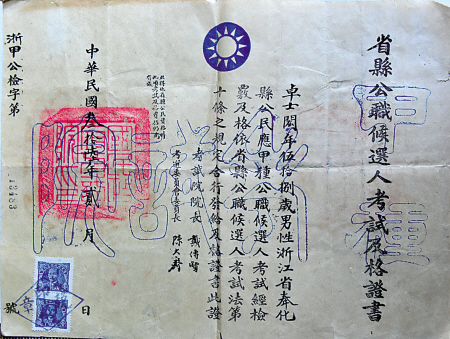 省縣公職候選人考試及格證書
甲種
卓士闓年伍拾捌歲男性浙江省奉化
縣公民應甲種公職候選人考試經檢
覈及格依省縣公職候選人考試法第
十條之規定合行發給及格證書此證
考試院院長 戴傳賢
考選委員會委員長 陳大齊
中華民國叁拾柒年貳月 日
浙甲公檢字第
號